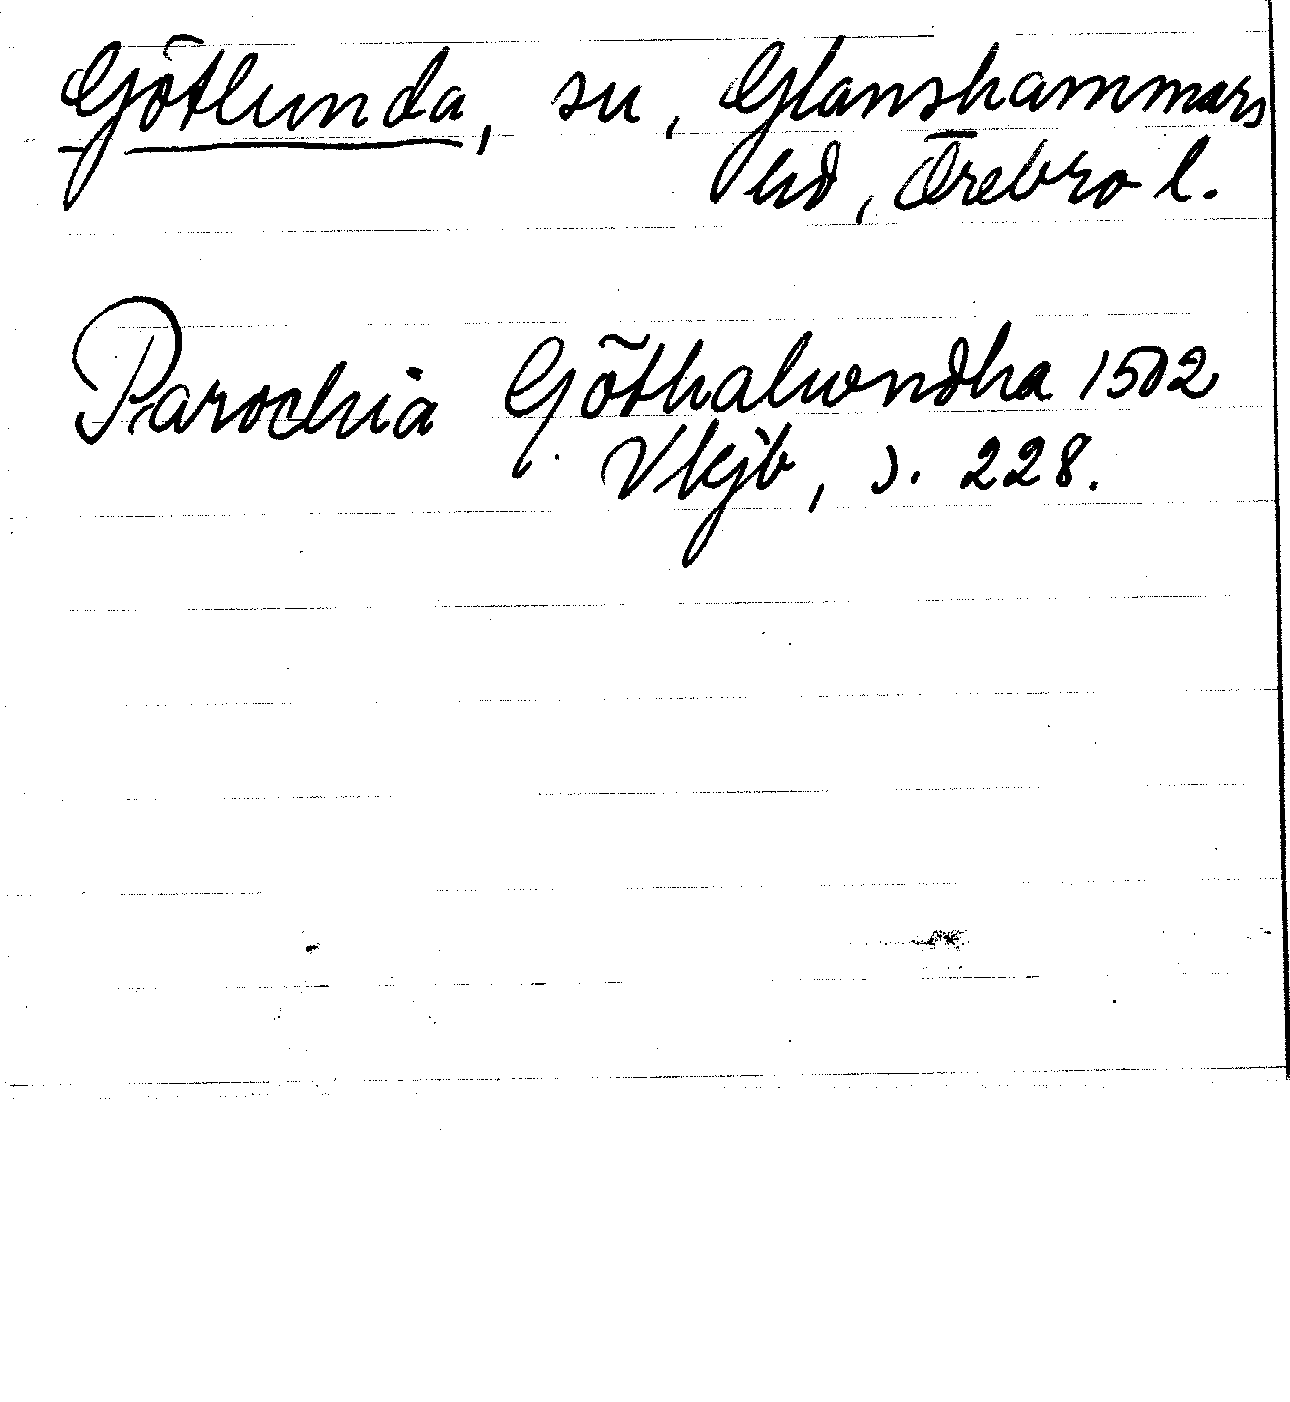 Götlunda, sn, Glanshammars
hd, Örebro l.
Parochia Göthalwndha 1502
Vkjb, s. 228.